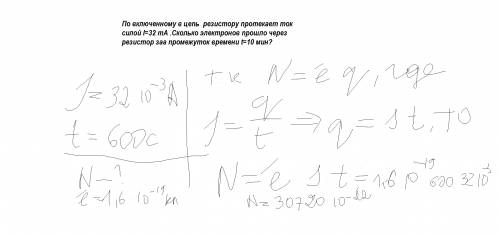 По включенному в цепь резистору протекает ток
силой I=32 mA .Сколько электронов прошло через
резистор заа промежуток времени t=10 мин?
J=32 10⁻³A
t=600c
N-?
e=1,6 10⁻¹⁹кл
т к N=e q, где
J=q/t ⇒ q=I t, то
N=e I t=1,6 10⁻¹⁹ 600 32 10
N=30720 10